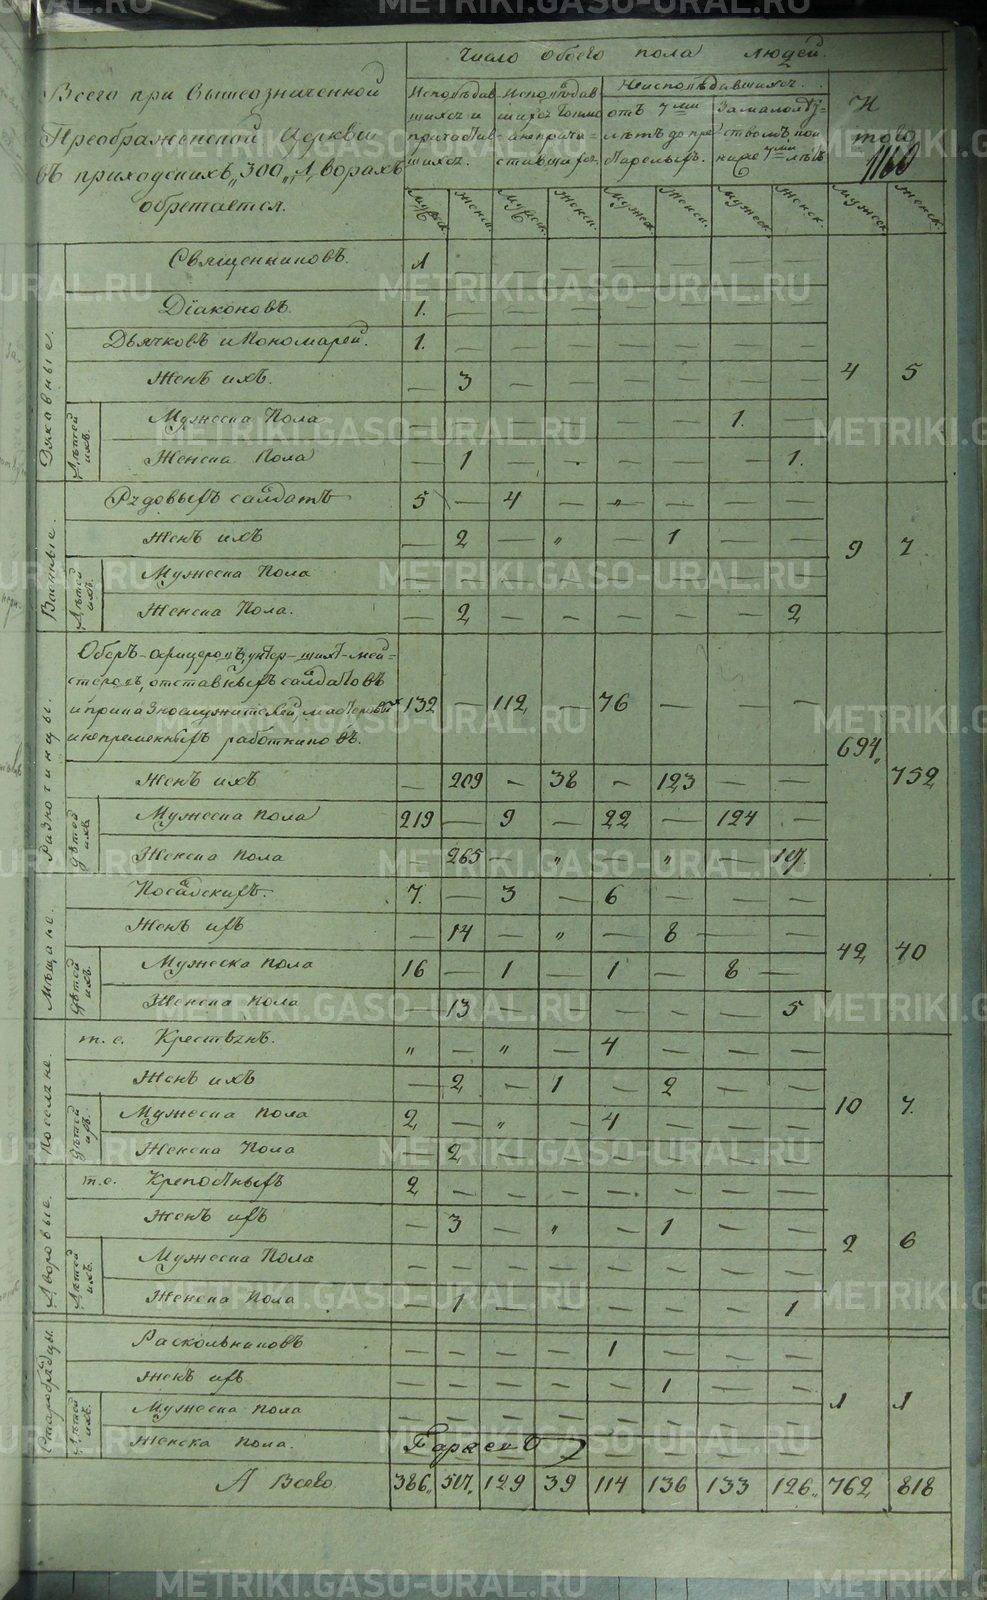 Число обоего пола людей.
Всего при вышеозначенной
Преображенской Церкви
въ приходскихъ „300„ дворахъ
обретается.
Исповѣдав
шихся и
причастив
шихся.
Исповѣдав
шихся токмо
а не прича=
стившихся.
Неисповѣдавшихся.
отъ 7ми
лѣтъ до пре
старелыхъ.
За малолѣт
ствомъ пои
ниже 7ми лѣтъ
И
того
1160
Мужеск. Женск. Мужеск. Женск. Мужеск. Женск. Мужеск. Женск. Мужеск. Женск.
Духовные.
Священниковъ. 1 — — — — —
Діаконовъ. 1. — — — — —
Дьячковъ и Пономарей. 1. — — — — — — —
Женъ ихъ. — 3 — — — — — — 4 5
Дѣтей ихъ.
Мужеска Пола — — — — — — 1. —
Женска Пола — 1 — — — — — 1.
Военные.
Рядовыхъ салдатъ 5 — 4 — „ — — —
Женъ ихъ — 2 — „ — 1 — — 9 7
Дѣтей ихъ.
Мужеска Пола — — — — — — — —
Женска Пола. — 2 — — — — — 2
Разночинцы.
Оберъ-офицеровъ, унтер-шихт-мей=
стеровъ, отставныхъ салдатовъ
и приказнослужителей, мастеровыхъ 132 — 112 — 76 — — —
и непременныхъ работниковъ. 694.
Женъ ихъ — 209 — 38 — 123 — — 752
Дѣтей ихъ
Мужеска пола 219 — 9 — 22 — 124 —
Женска пола — 265 — „ — „ — 117.
Мѣщане.
Посадскихъ. 7. — 3 — 6 — — —
Женъ ихъ — 14 — „ — 8 — —
Дѣтей ихъ.
Мужеска пола 16 — 1 — 1 — 8 — 42 40
Женска пола — 13 — — — — — 5
Поселяне.
т. е. Крестьянъ. „ — „ — 4 — — —
Женъ ихъ — 2 — 1 — 2 — —
Дѣтей ихъ.
Мужеска пола 2 — „ — 4 — — — 10 7.
Женска Пола — 2 — — — — — —
Дворовые.
т.е. Крепостныхъ 2 — — — — — — —
Женъ ихъ — 3 — „ — 1 — — 2 6
Дѣтей ихъ.
Мужеска Пола — — — — — — — —
Женска пола — 1 — — — — — 1
Старобрядцы.
Раскольниковъ — — — — 1 — — —
женъ ихъ — — — — — 1 — —
Дѣтей ихъ.
Мужеска пола — — — — — — — — 1 1
Женска пола.
А Всего. 386„ 517„ 129 39 114 136 133 126„ 762 818
METRIKI.GASO-URAL.RU